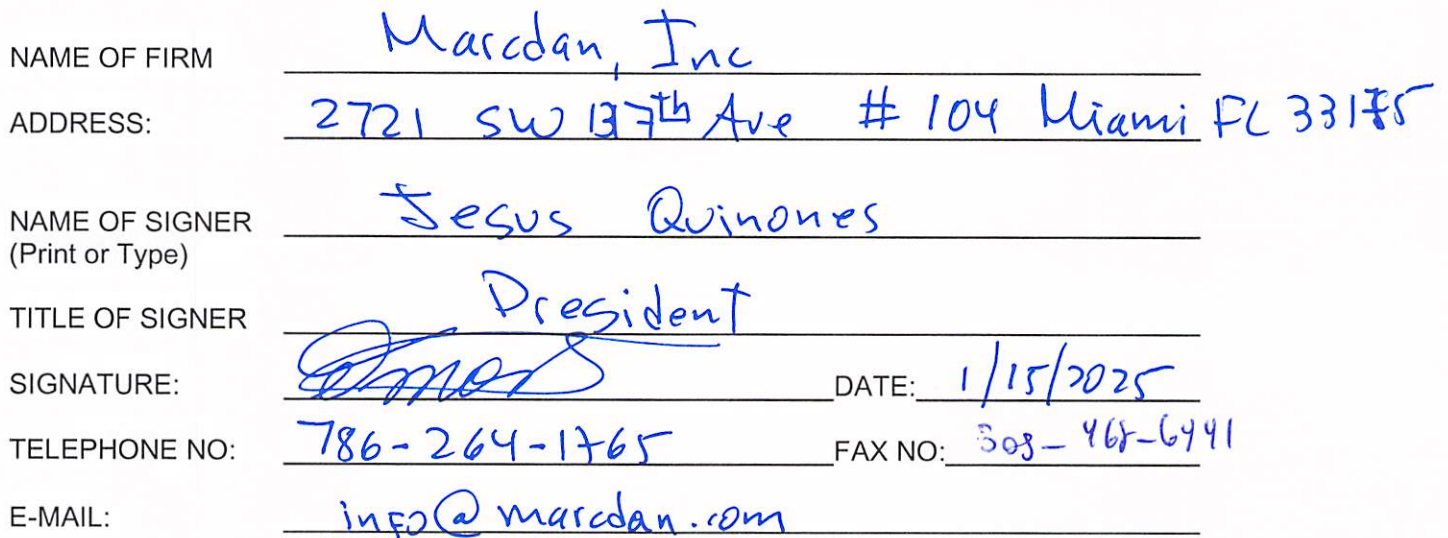 NAME OF FIRM Marcdan, Inc
ADDRESS: 2721 SW 137th Ave # 104 Miami FL 33175
NAME OF SIGNER Jesus Quinones
(Print or Type)
TITLE OF SIGNER President
SIGNATURE: DATE: 1/15/2025
TELEPHONE NO: 786-264-1765 FAX NO:
E-MAIL: info@marcdan.com